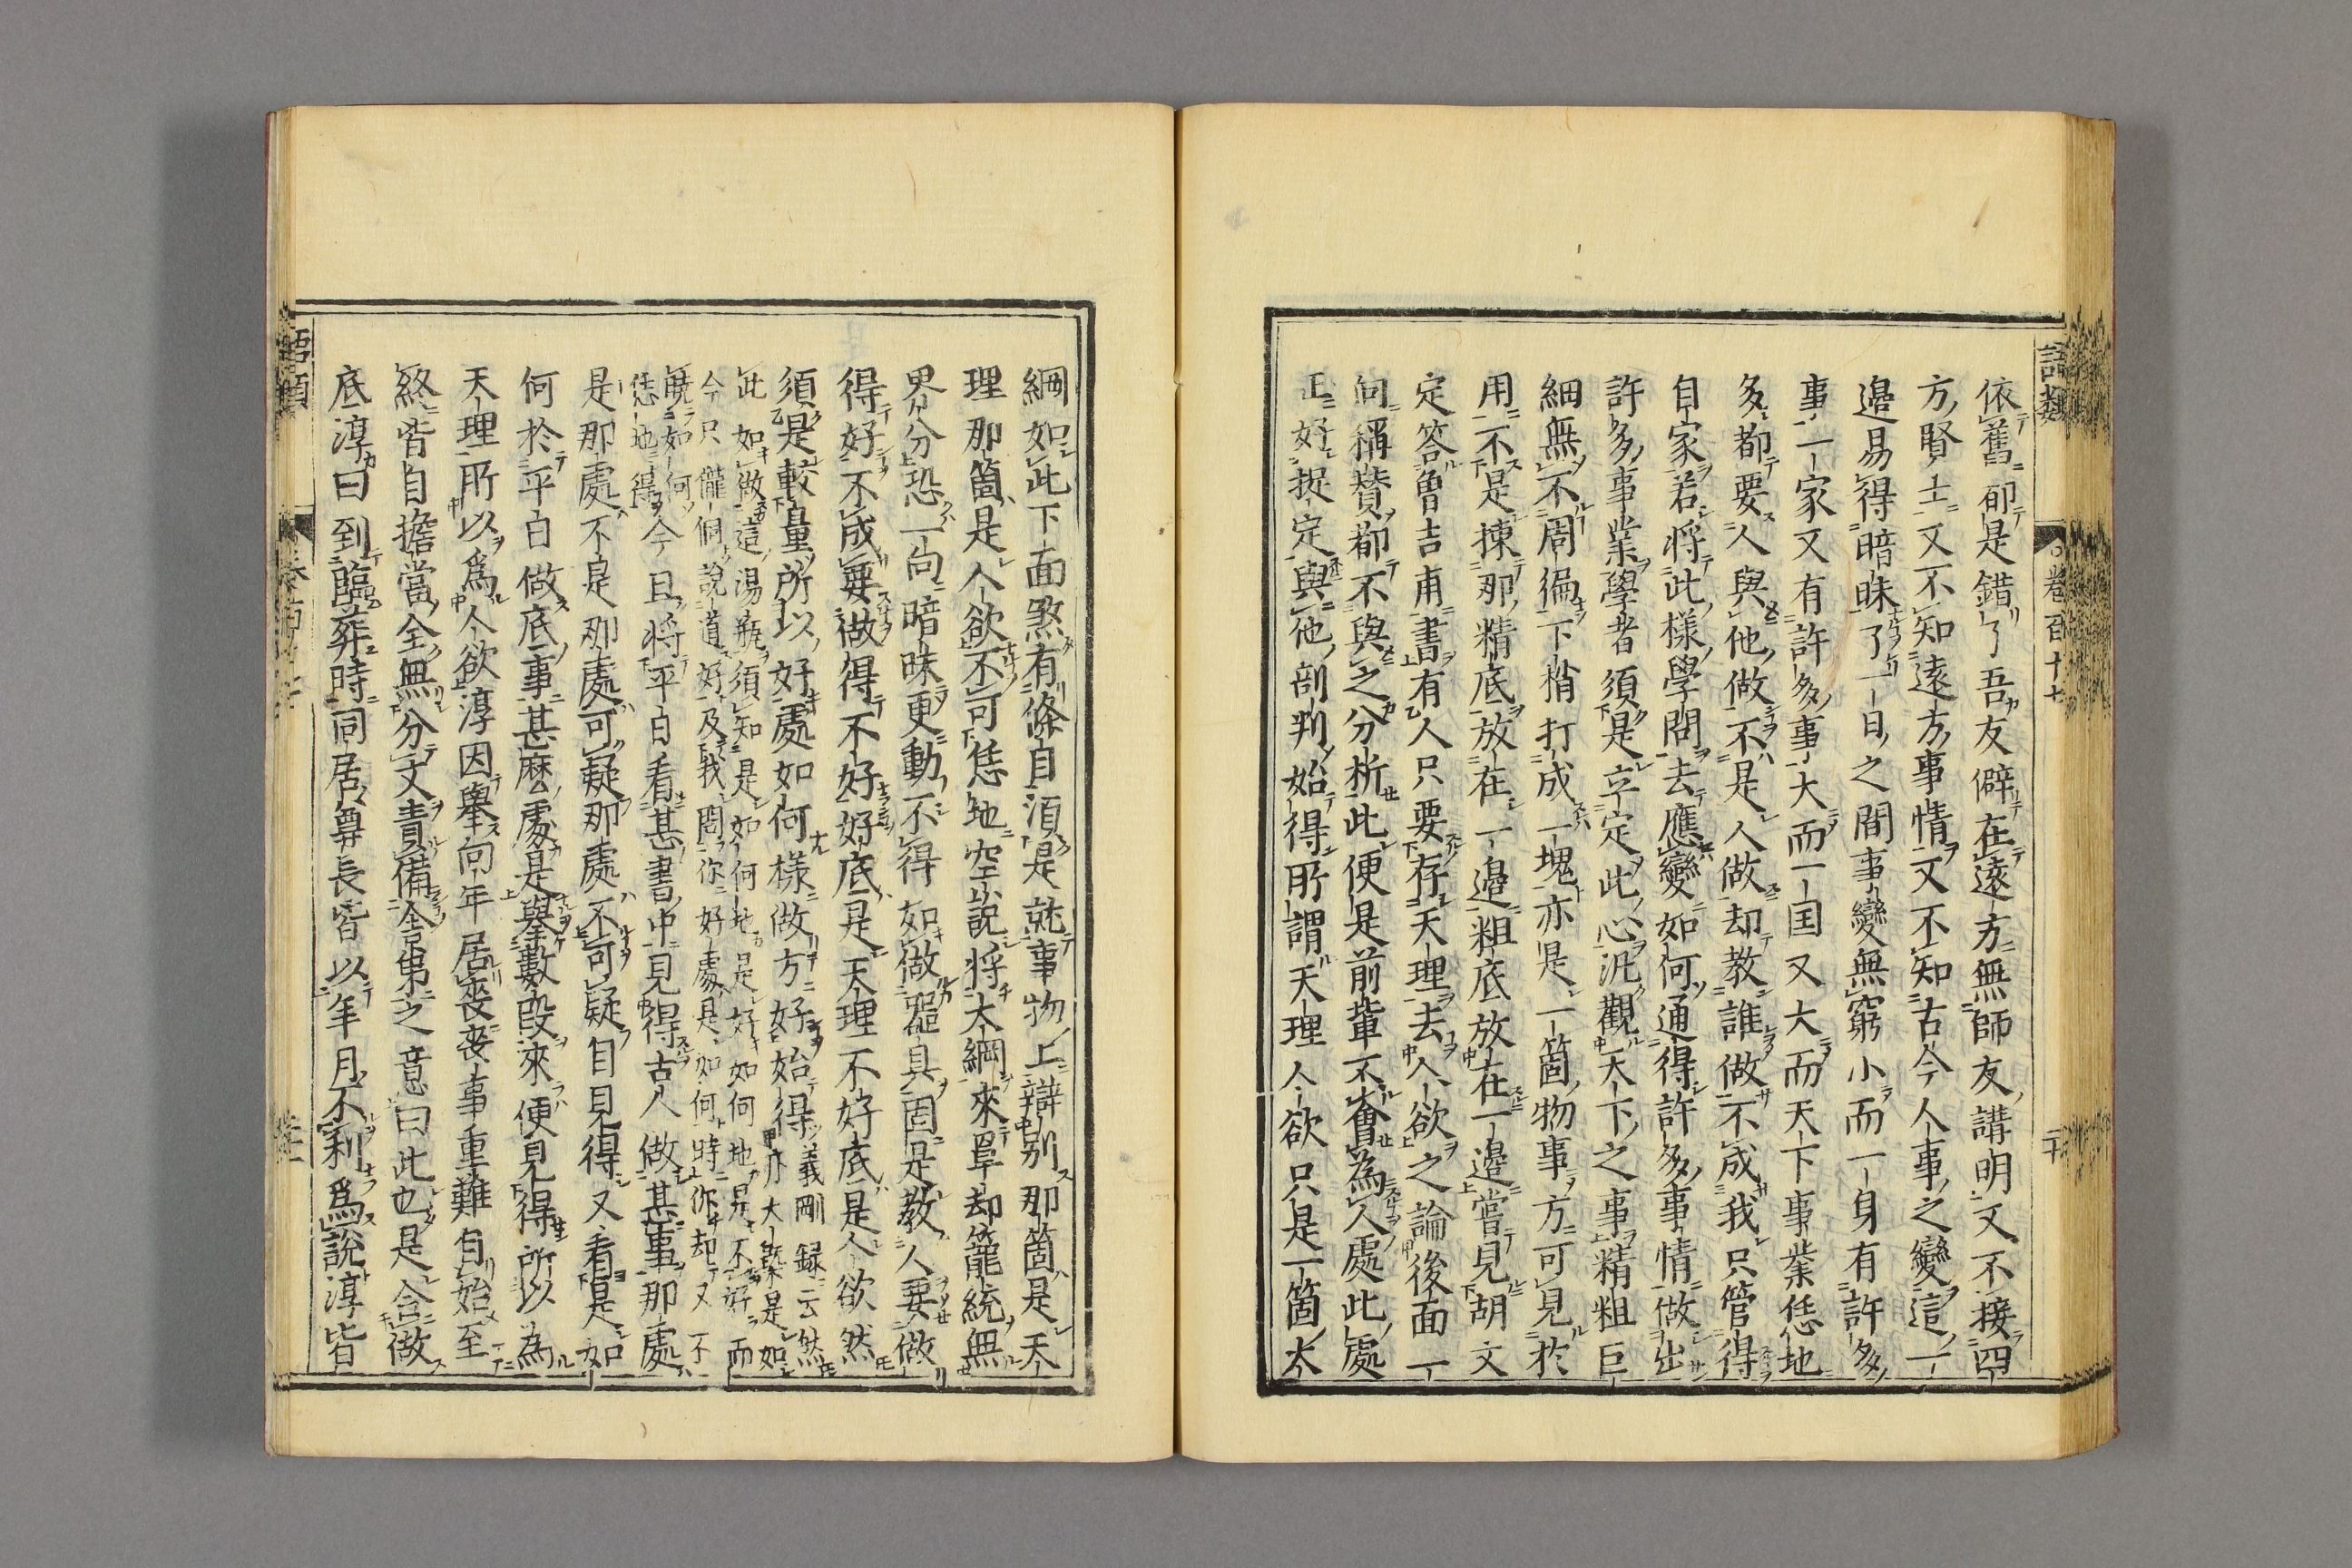 語類 卷百十七 二十
依舊却是錯了吾友僻在遠方無師友講明又不接四
方賢士又不知遠方事情又不知古今人事之變這一
邉易得暗昧了一日之間事變無窮小而一身有許多
事一家又有許多事大而一国又大而天下事業恁地
多都要人與他做不是人做却教誰做不成我只管得
自家若将此様學問去應變如何通得許多事情做出
許多事業學者須是立定此心汎觀天下之事精粗巨
細無不周徧下梢打成一塊亦是一箇物事方可見於
用不是揀那精底放在一邉粗底放在一邉嘗見胡文
定答曽吉甫書有人只要存天理去人欲之論後面一
向稱賛都不與之分析此便是前輩不會為人處此處
正好捉定與他剖判始得所謂天理人欲只是一箇大
綱如此下面煞有條目須是就事物上辯别那箇是天
理那箇是人欲不可恁地空說将大綱來罩却籠統無
界分恐一向暗昧更動不得如做器具固是教人要做
得好不成要做得不好好底是天理不好底是人欲然
須是較量所以好處如何様做方好始得義剛録云然
亦大槩是如
此如做這湯瓶須知是如何地是好如何地是不好而
今只儱侗說道好及我問你好處是如何時你却又不
曉如何
恁地得今且将平白看甚書中見得古人做甚事那處
是那處不是那處可疑那處不可疑自見得又看是如
何於平白做底事甚麽處是舉數段來便見得所以為
天理所以爲人欲淳因舉向年居喪喪事重難自始至
終皆自擔當全無分文責備舎弟之意曰此也是合做
底淳曰到臨葬時同居尊長皆以年月不利爲說淳皆
語類